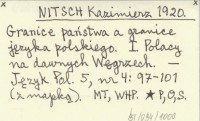 NITSCH Kazimierz 1920.
Granice państwa a granice
języka polskiego. I Polacy
na dawnych Węgrzech. —
Język Pol. 5, nr 4: 97-101
(z mapką). MT, WHP. ★ P, O, S.